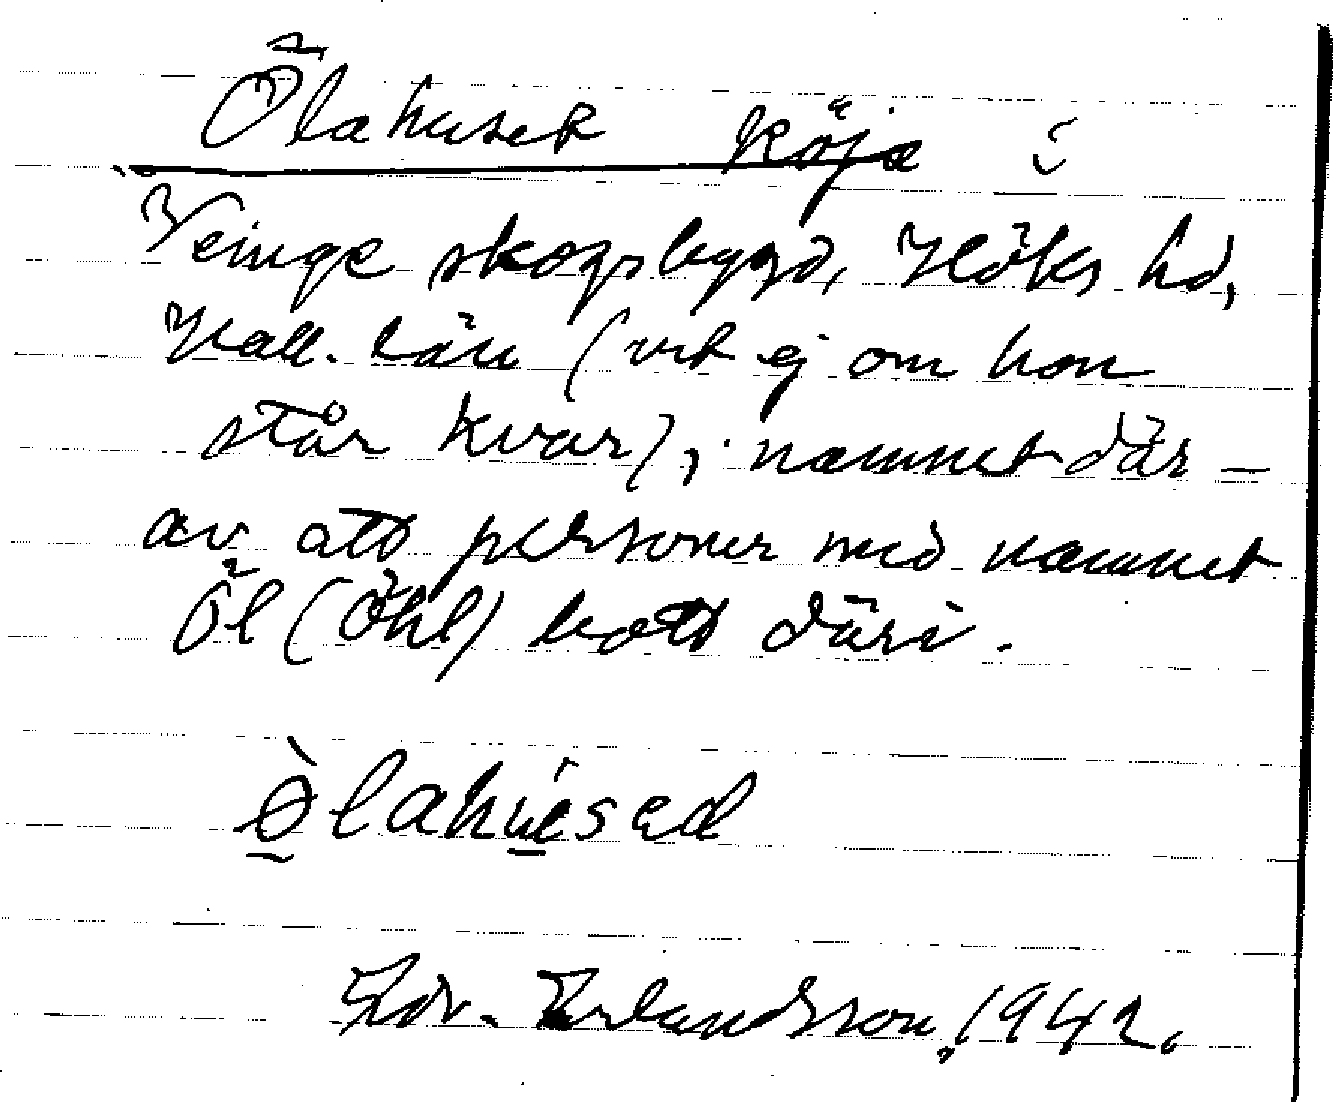 Ölahuset köja i
Veinge skogsbygd, Höks hd,
Hall. län (vet ej om hon
står kvar), namnet där-
av att personer med namnet
Öl (Öhl) bott däri.
ò̱lahu̱´sed
Edv. Erlandsson, 1942.